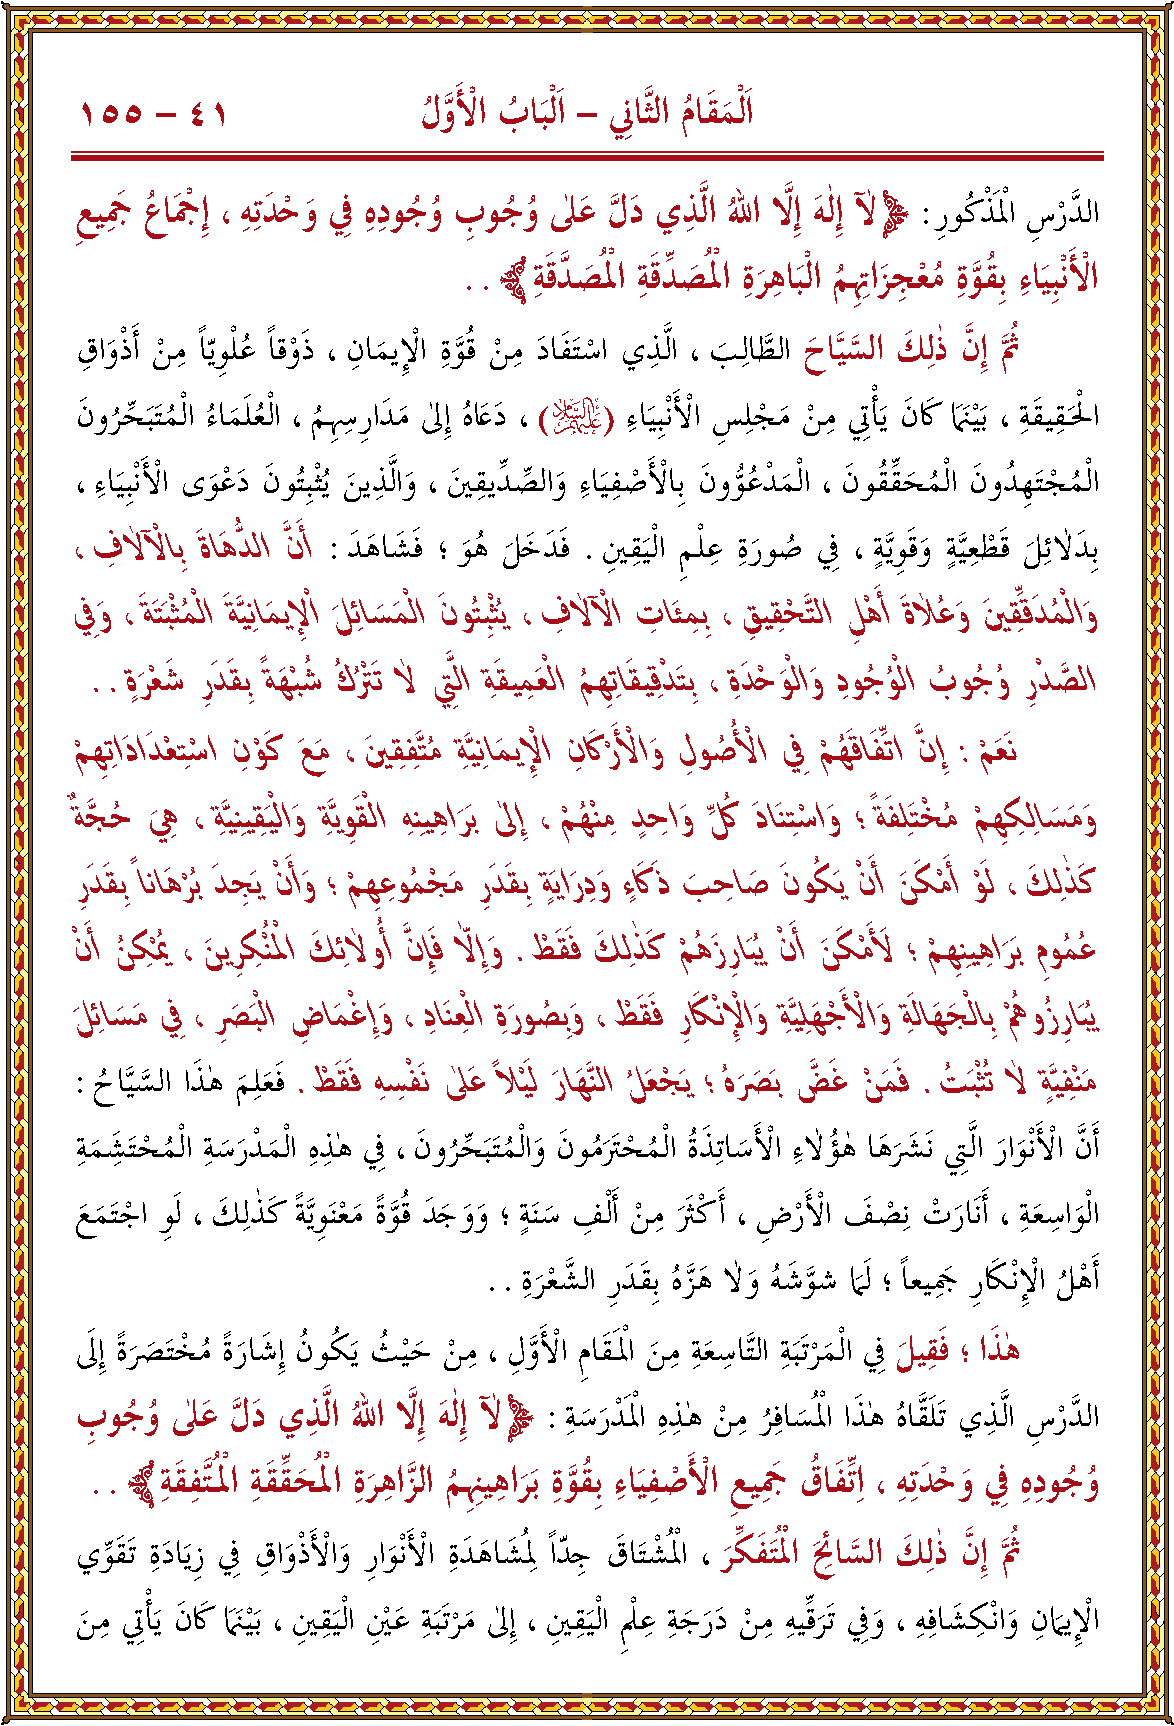 اَلْمَقَامُ الثَّانِي – اَلْبَابُ الْأَوَّلُ ٤١ – ١٥٥
الدَّرْسِ الْمَذْكُورِ : ﴿ لَآ إِلٰهَ إِلَّا اللهُ الَّذِي دَلَّ عَلٰى وُجُوبِ وُجُودِهِ فِي وَحْدَتِهِ ، إِجْمَاعُ جَمِيعِ
الْأَنْبِيَاءِ بِقُوَّةِ مُعْجِزَاتِهِمُ الْبَاهِرَةِ الْمُصَدِّقَةِ الْمُصَدَّقَةِ ﴾ . .
ثُمَّ إِنَّ ذٰلِكَ السَّيَّاحَ الطَّالِبَ ، الَّذِي اسْتَفَادَ مِنْ قُوَّةِ الْإِيمَانِ ، ذَوْقاً عُلْوِيّاً مِنْ أَذْوَاقِ
الْحَقِيقَةِ ، بَيْنَمَا كَانَ يَأْتِي مِنْ مَجْلِسِ الْأَنْبِيَاءِ (عَلَيْهِمُ السَّلَامُ) ، دَعَاهُ إِلٰى مَدَارِسِهِمُ ، الْعُلَمَاءُ الْمُتَبَحِّرُونَ
الْمُجْتَهِدُونَ الْمُحَقِّقُونَ ، الْمَدْعُوُّونَ بِالْأَصْفِيَاءِ وَالصِّدِّيقِينَ ، وَالَّذِينَ يُثْبِتُونَ دَعْوَى الْأَنْبِيَاءِ ،
بِدَلَائِلَ قَطْعِيَّةٍ وَقَوِيَّةٍ ، فِي صُورَةِ عِلْمِ الْيَقِينِ . فَدَخَلَ هُوَ ؛ فَشَاهَدَ : أَنَّ الدُّهَاةَ بِالْآلَافِ ،
وَالْمُدَقِّقِينَ وَعُلَاةَ أَهْلِ التَّحْقِيقِ ، بِمِئَاتِ الْآلَافِ ، يُثْبِتُونَ الْمَسَائِلَ الْإِيمَانِيَّةَ الْمُثْبَتَةَ ، وَفِي
الصَّدْرِ وُجُوبُ الْوُجُودِ وَالْوَحْدَةِ ، بِتَدْقِيقَاتِهِمُ الْعَمِيقَةِ الَّتِي لَا تَتْرُكُ شُبْهَةً بِقَدَرِ شَعْرَةٍ . .
نَعَمْ : إِنَّ اتِّفَاقَهُمْ فِي الْأُصُولِ وَالْأَرْكَانِ الْإِيمَانِيَّةِ مُتَّفِقِينَ ، مَعَ كَوْنِ اسْتِعْدَادَاتِهِمْ
وَمَسَالِكِهِمْ مُخْتَلِفَةً ؛ وَاسْتِنَادَ كُلِّ وَاحِدٍ مِنْهُمْ ، إِلٰى بَرَاهِينِهِ الْقَوِيَّةِ وَالْيَقِينِيَّةِ ، هِيَ حُجَّةٌ
كَذٰلِكَ ، لَوْ أَمْكَنَ أَنْ يَكُونَ صَاحِبَ ذَكَاءٍ وَدِرَايَةٍ بِقَدَرِ مَجْمُوعِهِمْ ؛ وَأَنْ يَجِدَ بُرْهَاناً بِقَدَرِ
عُمُومِ بَرَاهِينِهِمْ ؛ لَأَمْكَنَ أَنْ يُبَارِزَهُمْ كَذٰلِكَ فَقَطْ . وَإِلَّا فَإِنَّ أُولٰئِكَ الْمُنْكِرِينَ ، يُمْكِنُ أَنْ
يُبَارِزُوهُمْ بِالْجَهَالَةِ وَالْأَجْهَلِيَّةِ وَالْإِنْكَارِ فَقَطْ ، وَبِصُورَةِ الْعِنَادِ ، وَإِغْمَاضِ الْبَصَرِ ، فِي مَسَائِلَ
مَنْفِيَّةٍ لَا تُثْبَتُ . فَمَنْ غَضَّ بَصَرَهُ ؛ يَجْعَلُ النَّهَارَ لَيْلاً عَلٰى نَفْسِهِ فَقَطْ . فَعَلِمَ هٰذَا السَّيَّاحُ :
أَنَّ الْأَنْوَارَ الَّتِي نَشَرَهَا هٰؤُلَاءِ الْأَسَاتِذَةُ الْمُحْتَرَمُونَ وَالْمُتَبَحِّرُونَ ، فِي هٰذِهِ الْمَدْرَسَةِ الْمُحْتَشِمَةِ
الْوَاسِعَةِ ، أَنَارَتْ نِصْفَ الْأَرْضِ ، أَكْثَرَ مِنْ أَلْفِ سَنَةٍ ؛ وَوَجَدَ قُوَّةً مَعْنَوِيَّةً كَذٰلِكَ ، لَوِ اجْتَمَعَ
أَهْلُ الْإِنْكَارِ جَمِيعاً ؛ لَمَا شَوَّشَهُ وَلَا هَزَّهُ بِقَدَرِ الشَّعْرَةِ . .
هٰذَا ؛ فَقِيلَ فِي الْمَرْتَبَةِ التَّاسِعَةِ مِنَ الْمَقَامِ الْأَوَّلِ ، مِنْ حَيْثُ يَكُونُ إِشَارَةً مُخْتَصَرَةً إِلَى
الدَّرْسِ الَّذِي تَلَقَّاهُ هٰذَا الْمُسَافِرُ مِنْ هٰذِهِ الْمَدْرَسَةِ : ﴿ لَآ إِلٰهَ إِلَّا اللهُ الَّذِي دَلَّ عَلٰى وُجُوبِ
وُجُودِهِ فِي وَحْدَتِهِ ، اِتِّفَاقُ جَمِيعِ الْأَصْفِيَاءِ بِقُوَّةِ بَرَاهِينِهِمُ الزَّاهِرَةِ الْمُحَقَّقَةِ الْمُتَّفِقَةِ ﴾ . .
ثُمَّ إِنَّ ذٰلِكَ السَّائِحَ الْمُتَفَكِّرَ ، الْمُشْتَاقَ جِدّاً لِمُشَاهَدَةِ الْأَنْوَارِ وَالْأَذْوَاقِ فِي زِيَادَةِ تَقَوِّي
الْإِيمَانِ وَانْكِشَافِهِ ، وَفِي تَرَقِّيهِ مِنْ دَرَجَةِ عِلْمِ الْيَقِينِ ، إِلٰى مَرْتَبَةِ عَيْنِ الْيَقِينِ ، بَيْنَمَا كَانَ يَأْتِي مِنَ